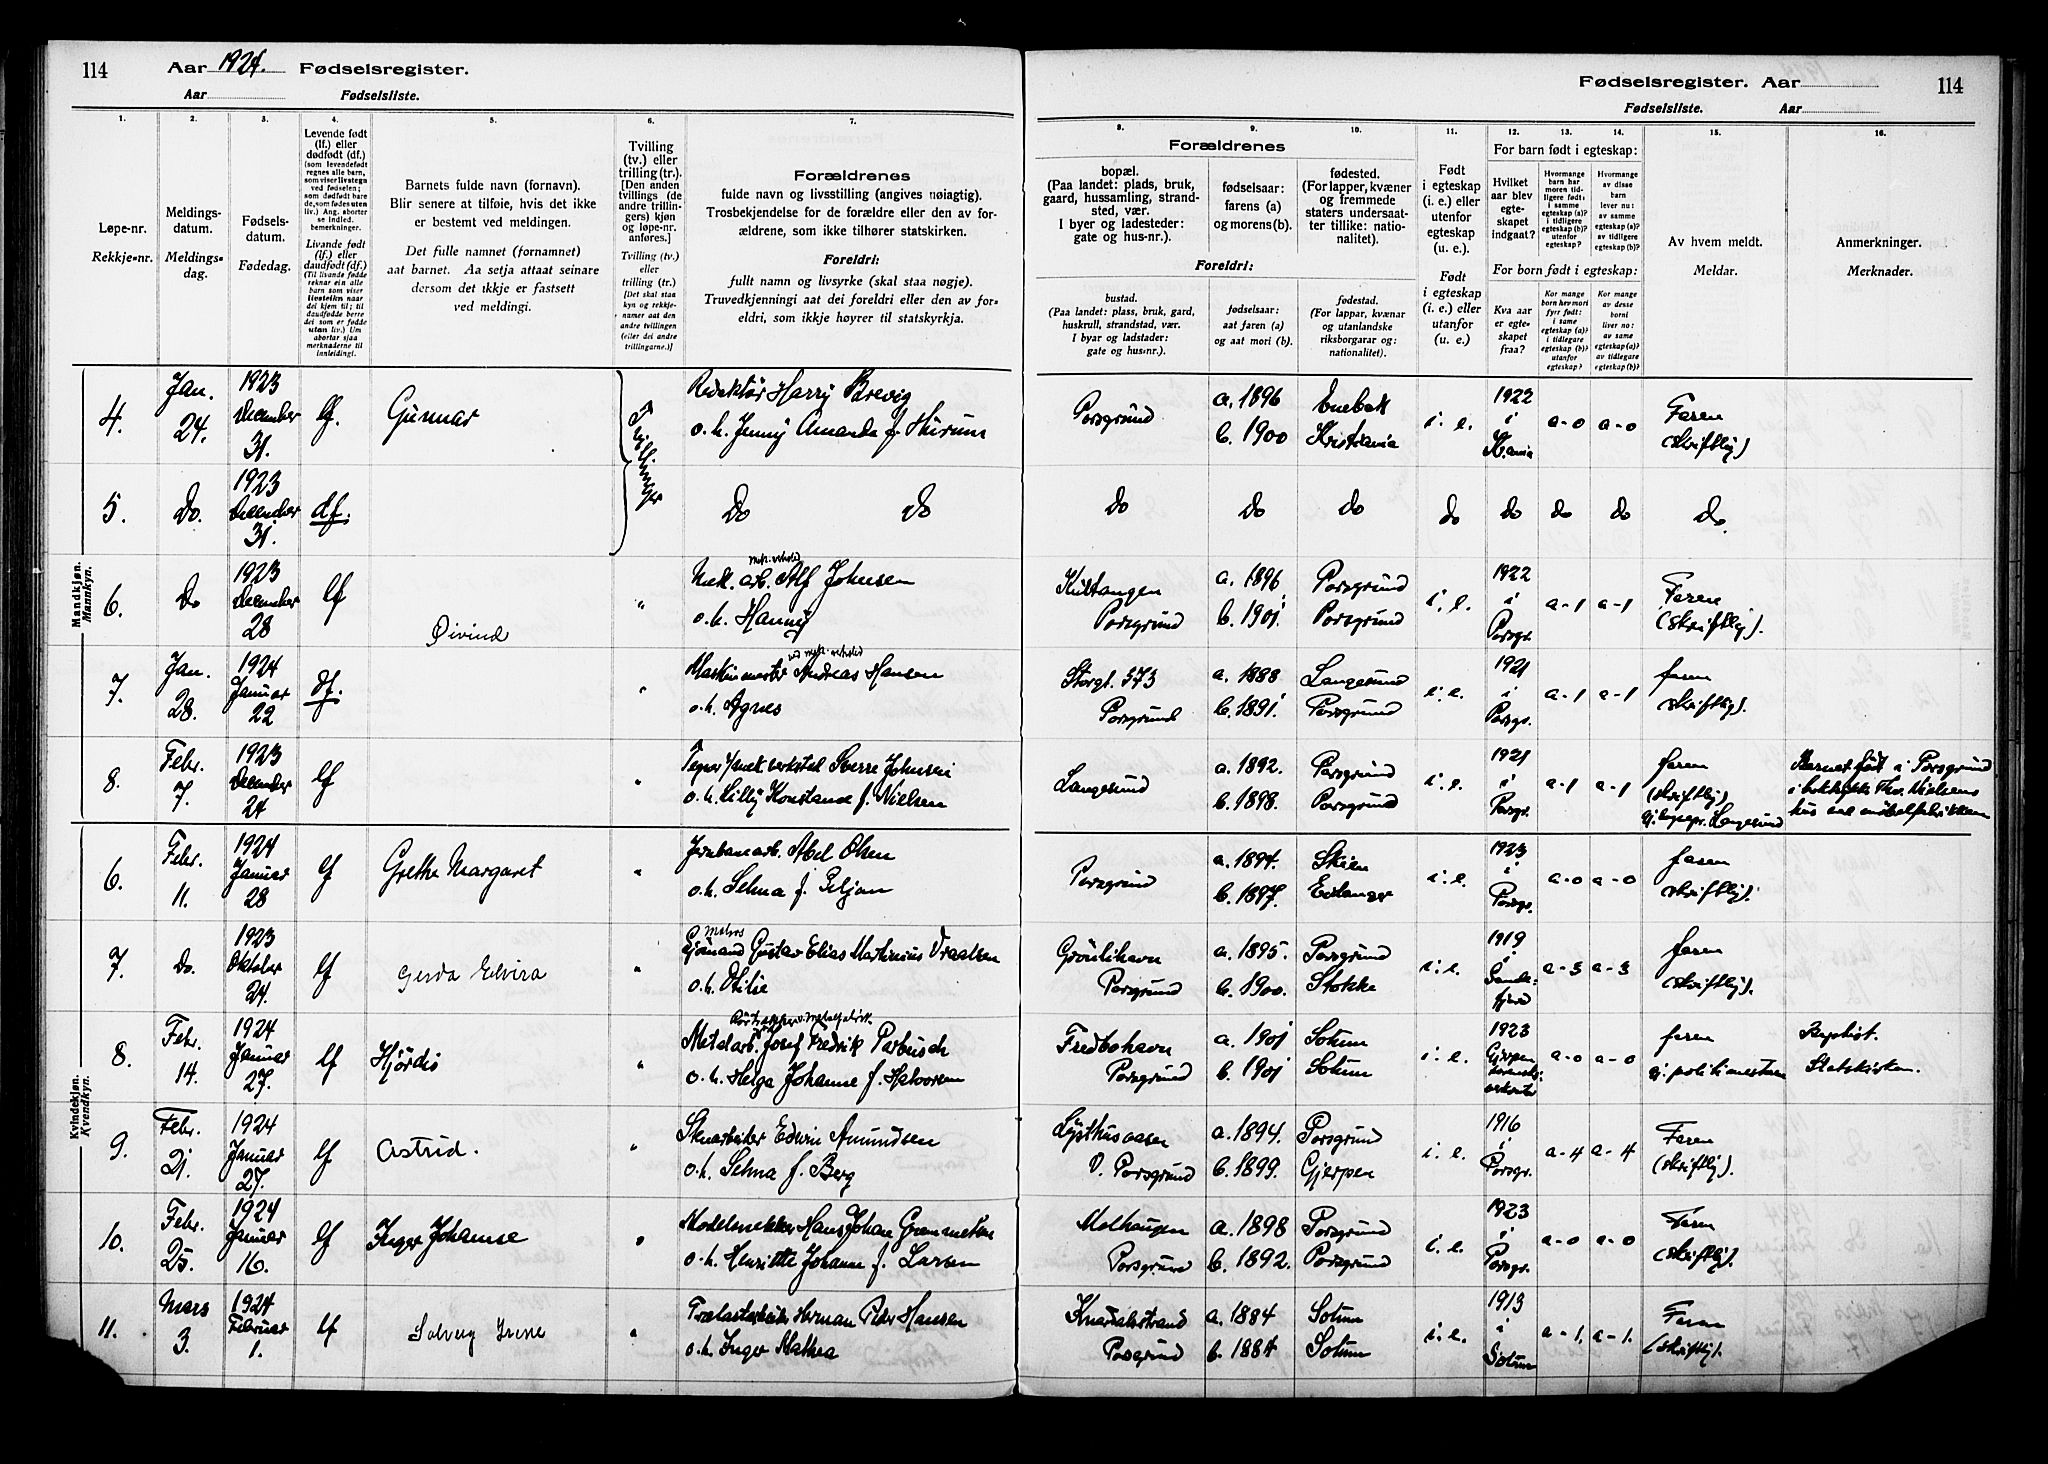 114 Aar 1924. Fødselsregister.
Aar Fødselsliste.
Fødselsregister. Aar 114
Fødselsliste. Aar
1. 2. 3. 4. 5. 6. 7. 8. 9. 10. 11. 12. 13. 14. 15. 16.
Løpe-nr.
Rekkje-nr.
Meldings-
datum.
Meldings-
dag.
Fødsels-
datum.
Fødedag.
Levende født
(lf.) eller
dødfødt (df.)
(som levendefødt
regnes alle barn,
som viser livstegn
ved fødselen;
som dødfødt bare
de, som fødes uten
liv.) Ang. aborter
se indled.
bemerkninger.
Livande født
(lf.) eller
daudfødt (df.)
(Til livande fødde
reknar ein alle
born som viser
livsteikn naar
dei kjem til; til
daudfødde berre
dei som er fødde
utan liv.) Um
abortar sjaa
merknaderne til
innleidingi.
Barnets fulde navn (fornavn).
Blir senere at tilføie, hvis det ikke
er bestemt ved meldingen.
Det fulle namnet (fornamnet)
aat barnet. Aa setja attaat seinare
dersom det ikkje er fastsett
ved meldingi.
Tvilling
(tv.) eller
trilling (tr.).
[Den anden
tvillings (de
andre trillin-
gers) kjøn
og løpe-nr.
anføres.]
Tvilling (tv.)
eller
trilling (tr.)
[Det skal staa
kyn og rekkje-
numer aat den
andre tvillingen
(eller dei andre
trillingarne.)]
Forældrenes
fulde navn og livsstilling (angives nøiagtig).
Trosbekjendelse for de forældre eller den av for-
ældrene, som ikke tilhører statskirken.
Foreldri:
fullt namn og livsyrke (skal staa nøgje).
Truvedkjenningi aat dei foreldri eller den av for-
eldri, som ikkje høyrer til statskyrkja.
Forældrenes
bopæl.
(Paa landet: plads, bruk,
gaard, hussamling, strand-
sted, vær.
I byer og ladesteder:
gate og hus-nr.).
fødselsaar:
farens (a)
og morens (b).
fødested.
(For lapper, kvæner
og fremmede
staters undersaat-
ter tillike: natio-
nalitet).
Foreldri:
bustad.
(Paa landet: plass, bruk, gard,
huskrull, strandstad, vær.
I byar og ladstader:
gate og hus-nr.).
fødselsaar:
aat faren (a)
og aat mori (b).
fødestad.
(For lappar, kvænar
og utanlandske
riksborgarar og:
nationalitet.)
Født
i egteskap
(i. e.) eller
utenfor
egteskap
(u. e.).
Født
i egteskap
(i. e.) eller
utanfor
(u. e.).
For barn født i egteskap:
Hvilket
aar blev
egte-
skapet
indgaat?
Hvormange
barn har
moren tid-
ligere født:
i samme
egteskap (a)?
i tidligere
egteskap (b)?
utenfor
egteskap?
Hvormange
av disse
barn
lever nu:
av samme
egteskap (a)?
av tidligere
egteskap (b)?
For born født i egteskap:
Kva aar
er egte-
skapet
fraa?
Kor mange
born hev mori
fyrr født:
i same
egteskap (a)?
i tidlegare
egteskap (b)?
utanfor
egteskap?
Kor mange
av desse
borni
liver no:
av same
egteskap (a)?
av tidlegare
egteskap (b)?
Av hvem meldt.
Meldar.
Anmerkninger.
Merknader.
Mandkjøn.
Mannkyn.
4. Jan. 24. 1923 December 31. lf. Gunnar Tvillinger Redaktør Harry Brevig
o. h. Jenny Amanda f. Hurum
Porsgrund a. 1896 b. 1900 Enebak Kristiania i. e. 1922 i Kr.ania a-0 a-0 Faren (skriftlig)
5. Do. 1923 December 31. df. Do Do
Do Do Do do do do do do.
6. Do 1923 December 28 lf Øivind " Mek. arb. Alf Johnsen
mek. verksted
o. h. Hanny
Porsgrund a. 1896 b. 1901. Porsgrund Porsgrund i. e. 1922 i Porsgr. a-1 a-1 Faren (skriftlig).
7. Jan. 28. 1924 Januar 22 df. " Maskinmester Andreas Hansen
ved mek. verksted
o. h. Agnes
Storgt. 573 Porsgrund a. 1888 b. 1891. Langesund Porsgrund i. e. 1921 i Porsgr. a-1 a-1 faren skriftlig).
8. Febr. 7. 1923 December 24 lf " Tegner i mek. verksted Sverre Johnsen
o. h. Lilly Konstance f. Nielsen
Langesund a. 1892. b. 1898. Porsgrund Porsgrund i. e. 1921 i Porsgr. a-1 a-1 faren (skriftlig) Langesund Barnet født i Porsgrund
Nielsens
Kvindekjøn.
Kvendkyn.
6. Febr. 11. 1924 Januar 28 lf Grethe Margaret " Jernbanearb. Abel Olsen
o. h. Selma f. Eiljan
Porsgrund a. 1894. b. 1897. Skien Eidanger i. e. 1923 i Porsgr. a-0 a-0 faren (skriftlig).
7. Do. 1923 Oktober 24. lf Gerda Elvira " Sjømand Gustav Elias Martinius Vraalsen
o. h. Otilie
Grönlihavn Porsgrund a. 1895. b. 1900. Porsgrund Stokke i. e. 1919 i Sande- fjord a-3 a-3 faren (skriftlig).
8. Febr. 14. 1924 Januar 27. lf Hjördis " Metalarb. Josef Fredrik Parbusch
o. h. Helga Johanne f. Halvorsen
Fredbohavn Porsgrund a. 1901 b. 1901 Solum Solum i. e. 1923 Gjerpen a-0 a-0 faren politimesteren Baptist.
Statskirken.
9. Febr. 21. 1924 Januar 27. lf Astrid. " Skoarbeider Edvin Amundsen
o. h. Selma f. Berg
Lysthusaasen V. Porsgrund a. 1894. b. 1899. Porsgrund Gjerpen i. e. 1916 i Porsgr. a-4 a-4 Faren (skriftlig).
10. Febr. 25. 1924 Januar 16. lf Inger Johanne " Modelsnekker Hans Johan
o. h. Henriette Johanne f. Larsen
Molhaugen Porsgrund a. 1898 b. 1892. Porsgrund Porsgrund i. e. 1923 i Porsgr. a-0 a-0 Faren (skriftlig).
11. Mars 3. 1924 Februar 1. lf Solveig Irene " Trælastarbeider Herman Peder Hansen
o. h. Inger Mathea
Knardalstrand Porsgrund a. 1884 b. 1884 Solum Solum i. e. 1913 i Solum a-1. a-1. Faren (skriftlig).